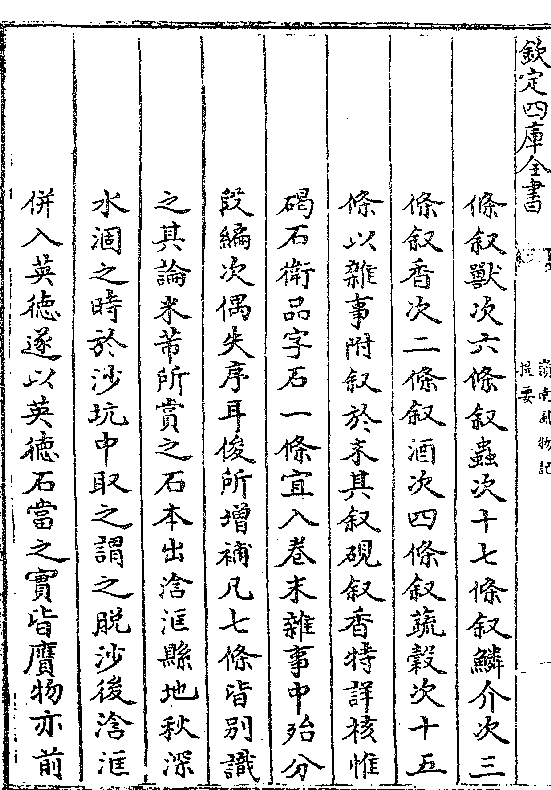 欽定四庫全書
嶺南風物記
提要
條叙獸次六條叙蟲次十七條叙鱗介次三
條叙香次二條叙酒次四條叙蔬穀次十五
條以雜事附叙於末其叙硯叙香特詳核惟
碣石衛品字石一條宜入卷末雜事中殆分
段編次偶失序耳後所增補凡七條皆别識
之其論米芾所賞之石本出浛洭縣地秋深
水涸之時於沙坑中取之謂之脱沙後浛洭
併入英徳遂以英徳石當之實皆贋物亦前